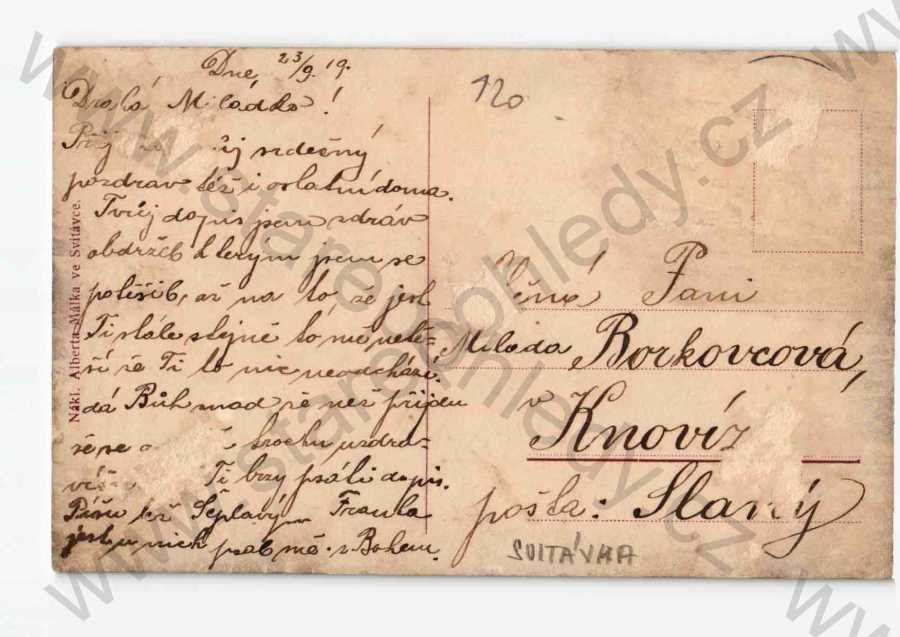 Dne 23/9. 19.
Drahá Miládko!
srdečný
pozdrav též i ostatní doma.
Tvůj dopis jsem zdráv
obdržel kterým jsem se
potěšil, až na to, že jest
Ti stále stejně to mě netě-
ší že Ti to nic neodchází.
dá Bůh snad že než přijdu
že se trochu uzdra-
Ti brzy psáti dopis.
Píšu též Franta
jestli u nich psal mě. s Bohem.
Nákl. Alberta Málka ve Svitávce.
120
Ctěná Paní
Milada Borkovcová,
v
Knovíz
pošta: Slaný
SVITÁVKA
www.staropohledy.cz